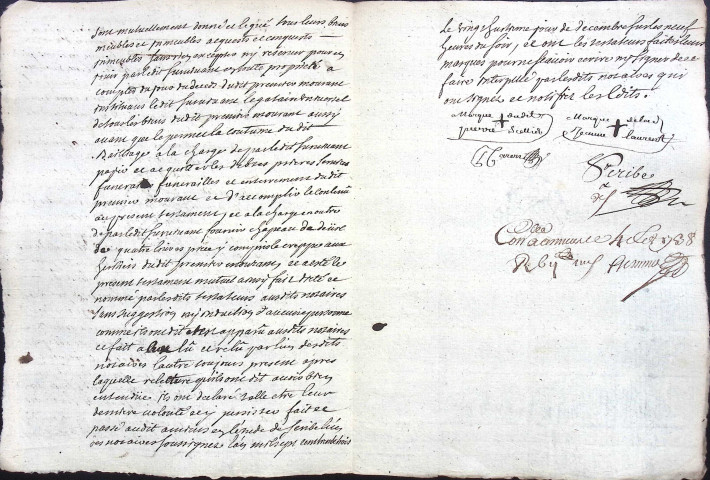 sont mutuellement donné et legué tous leurs biens
meubles et immeubles acquests et conquests
immeubles sans rien excepter ny retenir pour en
jouir par ledit survivant en toute propriété a
compter du jour du deceds dudit premier mourant
instituant ledit survivant legataire universel
de tous les biens dudit premier mourant aussy
avant que le permet la coutume dudit
Bailliage a la charge de par ledit survivant
payer et acquitter les debtes prieres services
funeraux funerailles et enterrement dudit
premier mourant et d'accomplir le contenu
au present testament, et a la charge en outre
de par ledit survivant fournir chapeau de deüil
de quatre livres piece y compris le creppe aux
heritiers dudit premier mourant, et a esté le
present testament mutuel ainsy fait dicté et
nommé par lesdits testateurs ausdits notaires
sans suggestion ny induction d'aucune personne
comme ils ont dit et est apparu ausdits notaires
ce fait a leur lû et relu par l'un desdits
notaires l'autre toujours present apres
laquelle relecture qu'ils ont dit avoir bien
entendüe ils ont declaré telle etre leur
derniere volonté et y persister fait et
passé audit amiens en l'etude de Scribe l'un
des notaires soussignez l'an mil sept cent trente trois
le vingt huitieme jour de decembre sur les neuf
heures du soir, et ont les testateurs fait leurs
marques pour ne scavoir ecrire ny signer de ce
faire interpellé par lesdits notaires qui
ont signez et notifié les Edits.
Marque + dudit
Marque + de lad
Jeanne Laurent
Scribe
4
1738